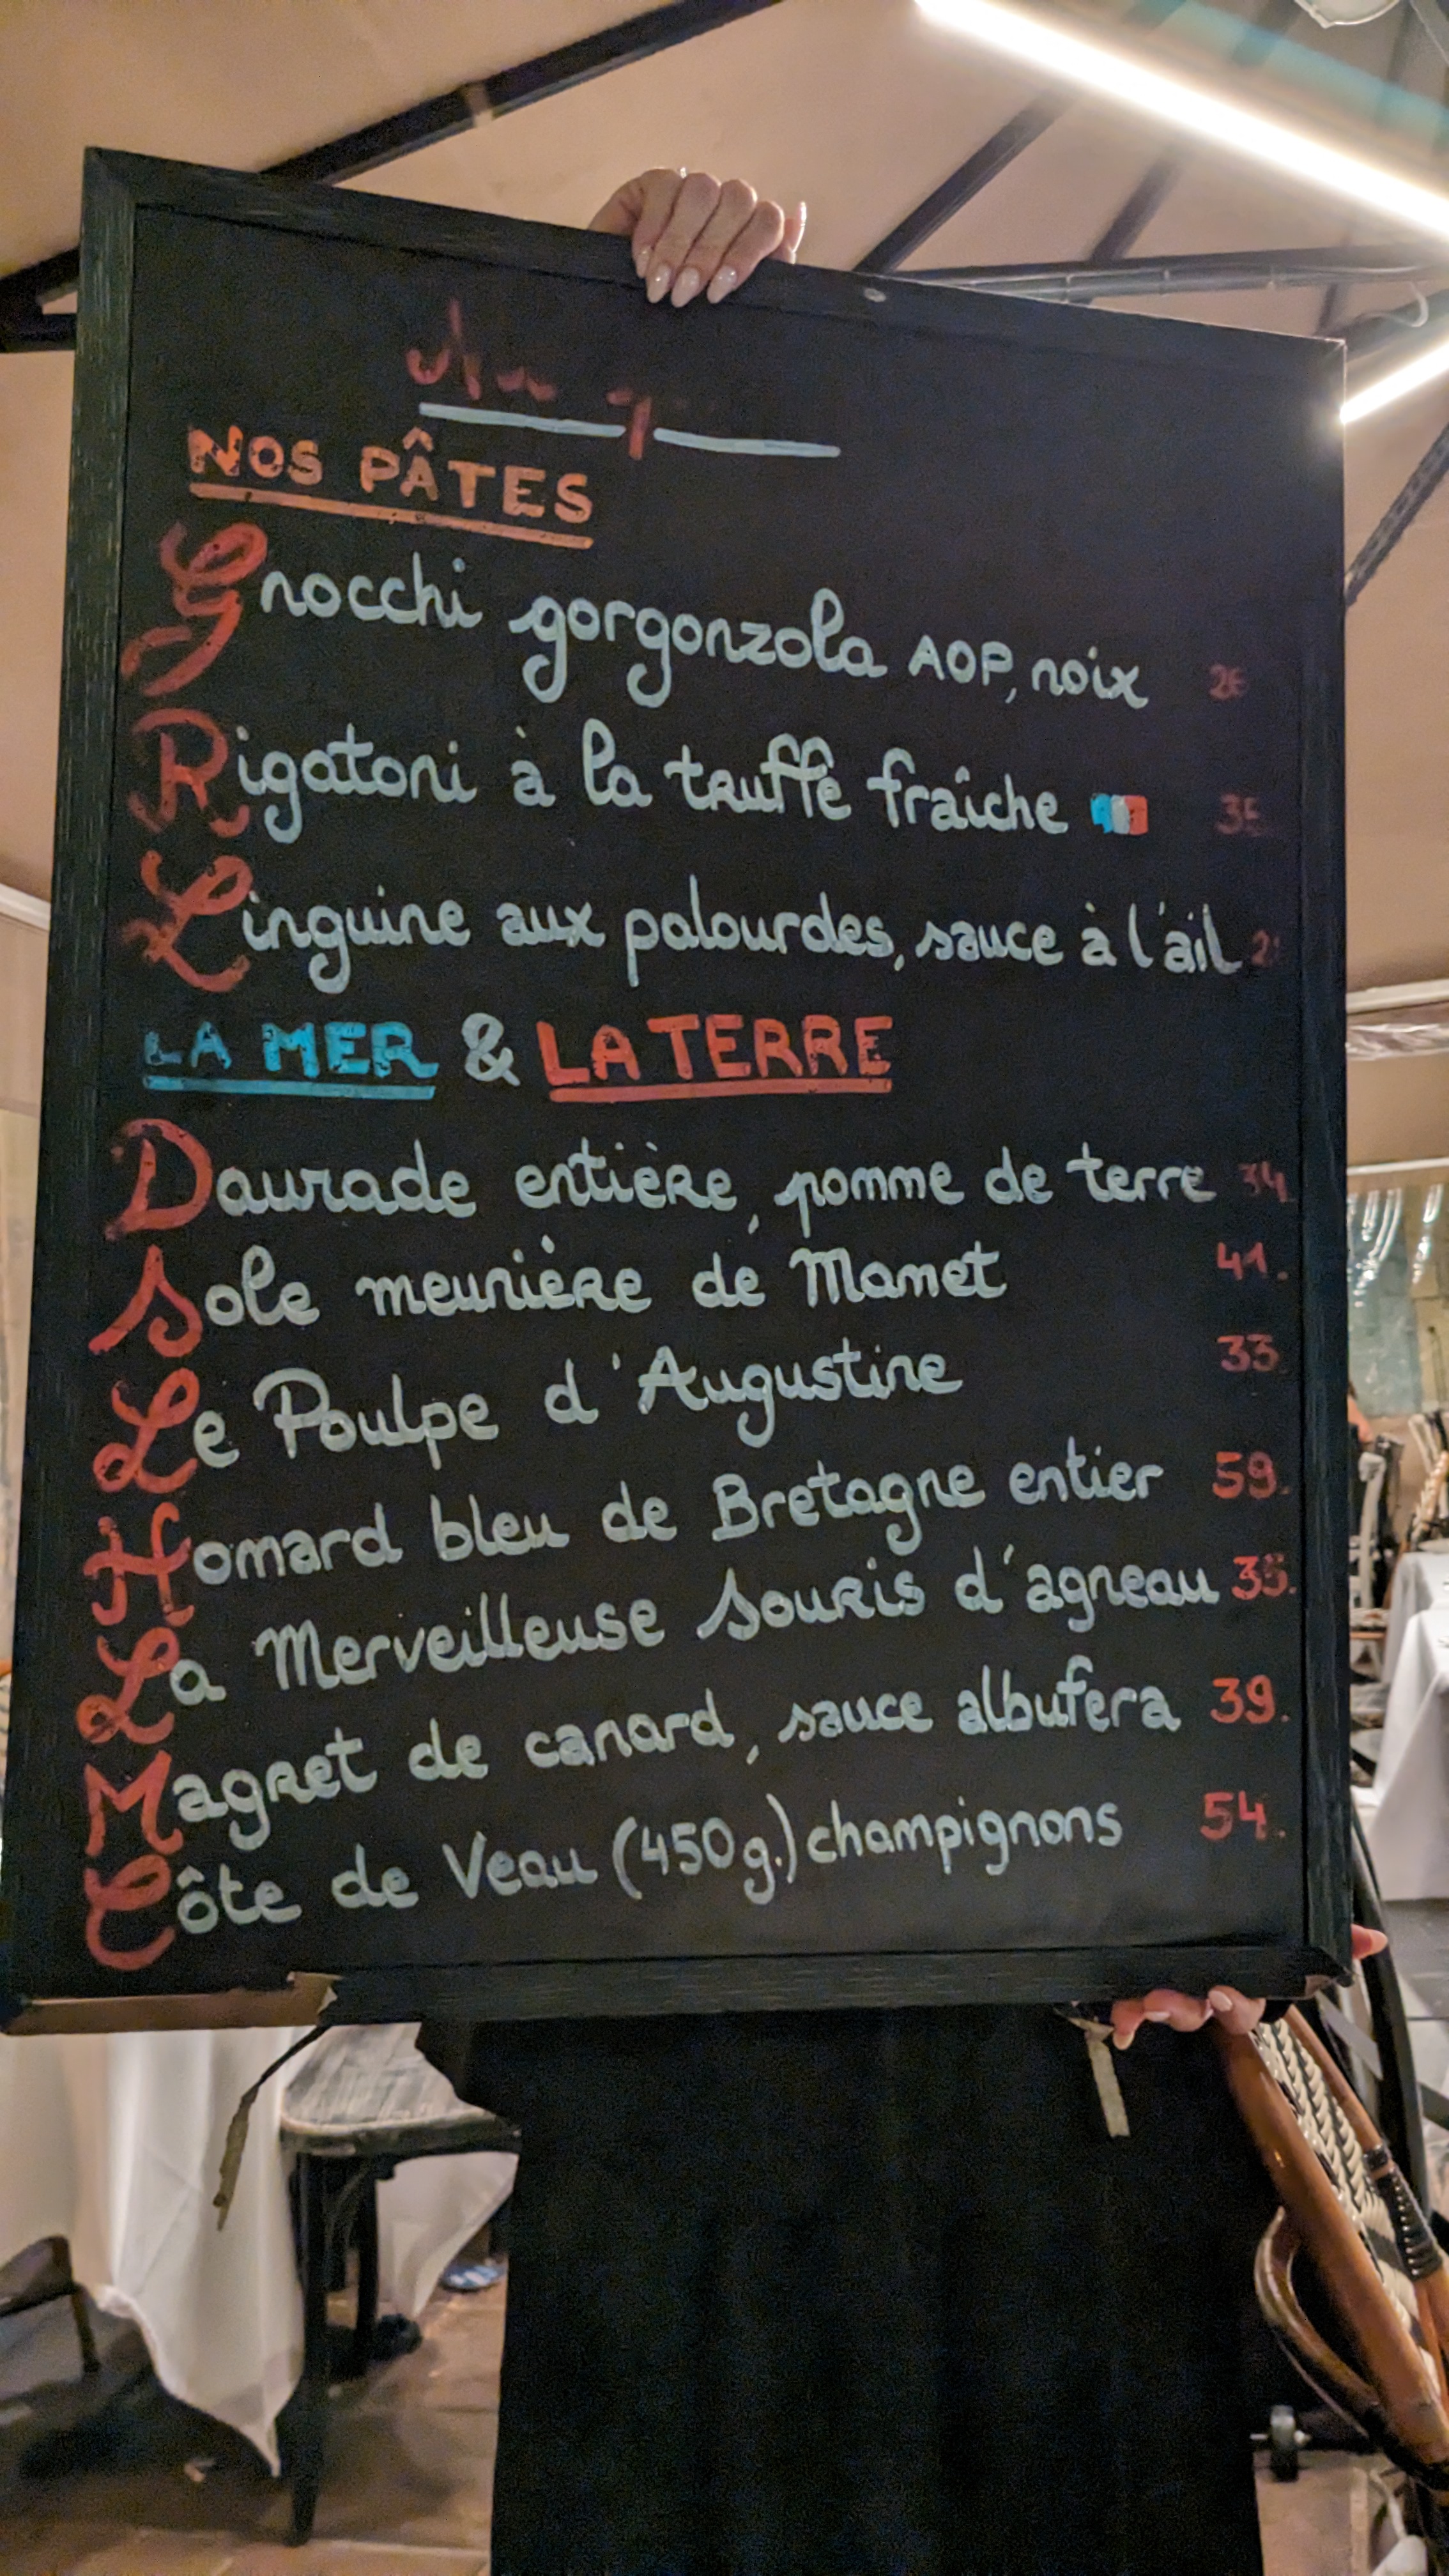 NOS PÂTES
Gnocchi gorgonzola AOP, noix 26
Rigatoni à la truffe fraîche 35
Linguine aux palourdes, sauce à l'ail
LA MER & LA TERRE
Daurade entière, pomme de terre 34.
Sole meunière de Mamet 41.
Le Poulpe d'Augustine 33.
Homard bleu de Bretagne entier 59.
La Merveilleuse souris d'agneau 35.
Magret de canard, sauce albufera 39.
Côte de Veau (450g.) champignons 54.